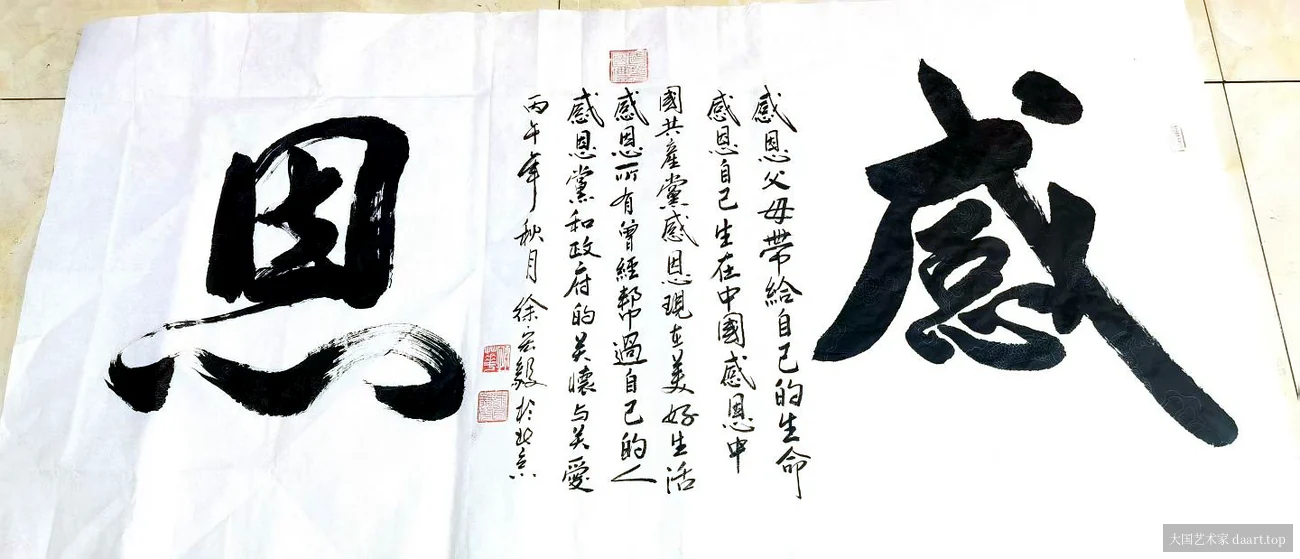 感
感恩父母带給自己的生命
感恩自己生在中國感恩中
國共產黨感恩現在美好生活
感恩所有曾經幫過自己的人
感恩黨和政府的关懷与关愛
丙午年秋月徐宏毅於北京
恩
大国艺术家 daart.top